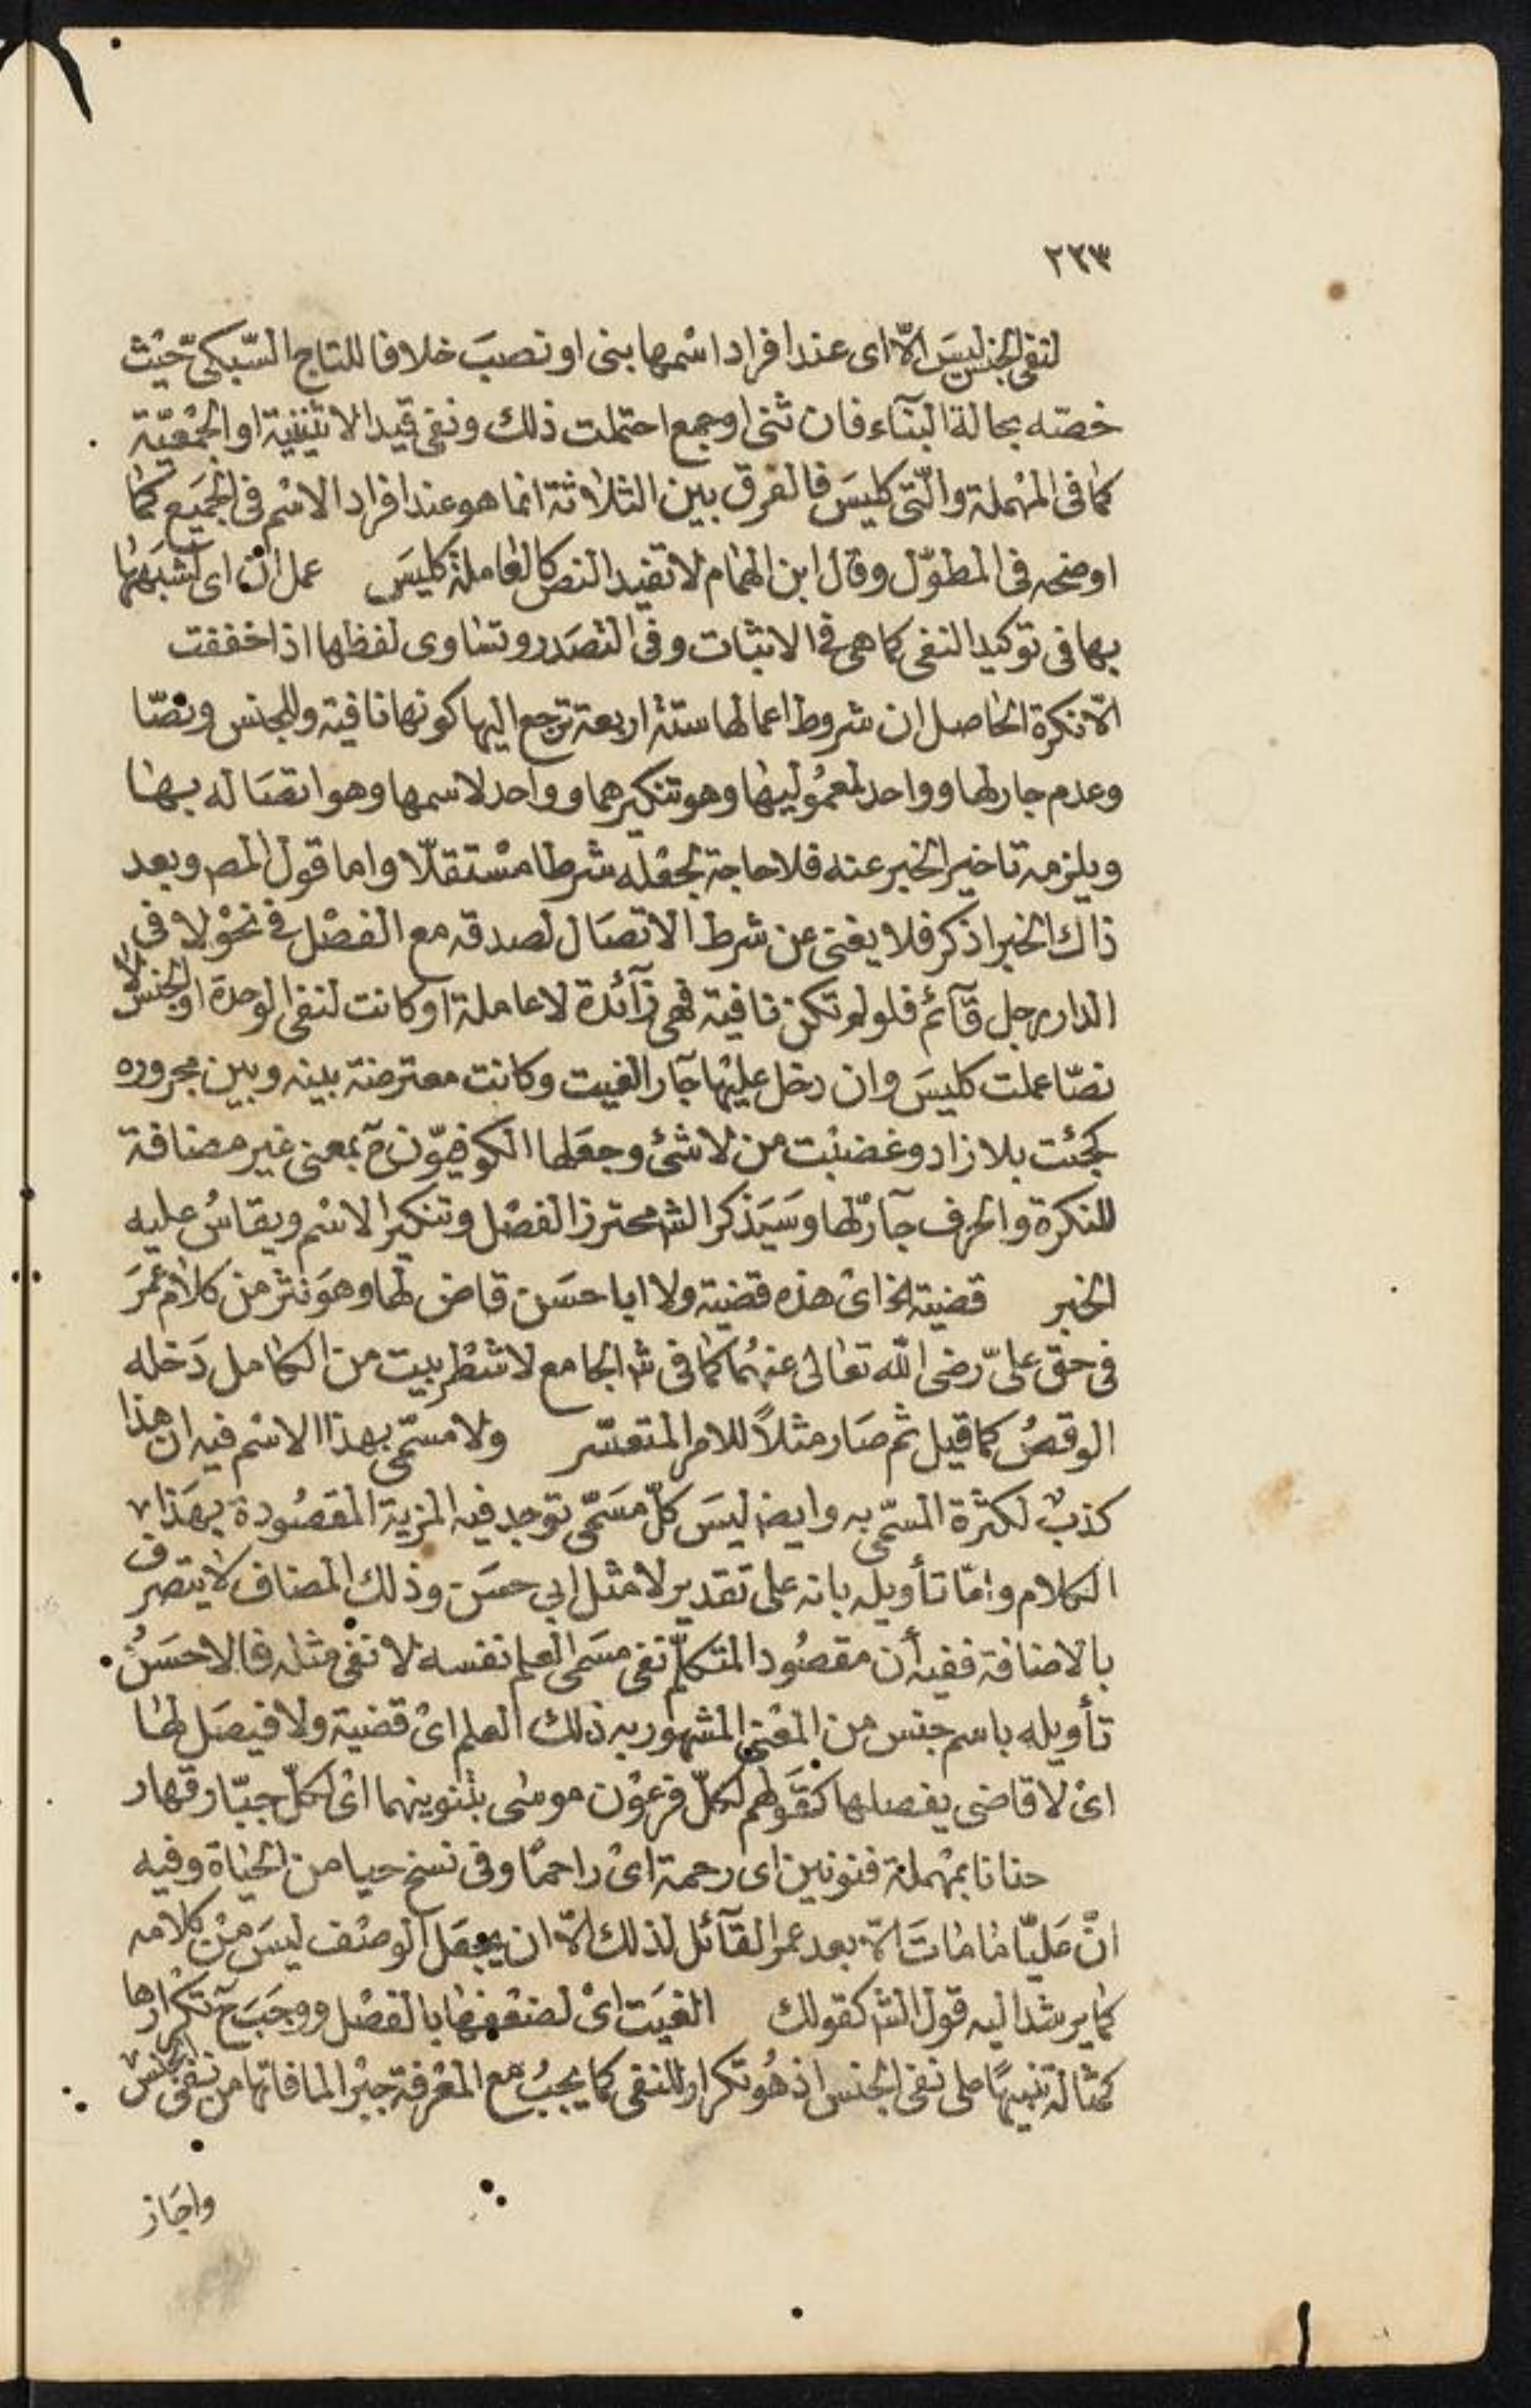 ٢٢٣
لنفى الجنس ليس الّا اى عند افراد اسْمها بنى او نصبَ خلافا للتاج السّبكىّ حيْث
خصّه بحالة البنآء فان ثنى او جمع احتملت ذلك ونفى قيد الاثنينية او الجمْعيّة
كما فى المهْملة والّتى كليسَ فالفرق بين الثلاثة انما هو عند افراد الاسْم فى الجميَع كما
اوضحه فى المطوّل وقال ابن الهمام لا تفيد النص كالعاملة كليَس عمل انّ اى لشبهها
بها فى توكيد النفى كما هى فى الاثبات وفى التصَدر وتساوى لفظها اذا خففت
الّا نكرة الحاصل ان شروط اعمالها ستة اربعة ترجع اليها كونها نافية وللجنس ونصّا
وعدم جار لها وواحد لمعمُوليها وهو تنكيرهما وواحد لاسمها وهو اتصَاله بها
ويلزمه تاخير الخبر عنه فلا حاجة لجعْله شرطا مسْتقلّا واما قول المص وبعد
ذاك الخبر اذكر فلا يغنى عن شرط الاتصَال لصدقه مع الفصْل فى نحْو لا فى
الدار رجل قآئم فلو لم تكن نافية فهى زآئدة لا عاملة او كانت لنفى الوحدة او الجنس لا
نصّا عملت كليسَ وان دخل عليْها جآر الغيت وكانت معترضة بينه وبين مجروره
كجئت بلا زاد وغضبْت من لا شئ وجعَلها الكوفيّون ح بمعنى غير مضافة
للنكرة والحرف جآرّ لها وسَيَذكر الش محترز الفصْل وتنكير الاسْم ويقاسُ عليه
الخبر قضية الخ اىْ هذه قضية ولا ابا حسَن قاض لها وهوَ نثر من كلام عُمَر
فى حق علىّ رضى الله تعالى عنهُما كما فى ش الجامع لا شطْر بيت من الكامل دَخله
الوقصُ كما قيل ثم صَار مثلاً للامر المتعسّر ولا مسَمّى بهذا الاسْم فيه ان هذا
كذبٌ لكثْرة المسّمى به وايض ليسَ كلّ مسَمّى توجد فيه المزية المقصُودة بهَذا
الكلام وامّا تأويله بانه على تقدير لا مثل ابى حسَن وذلك المضاف لا يتصرف
بالاضافة ففيه أن مقصُود المتكلّم نفى مسَمى العلم نفسه لا نفى مثله فالاحسَنُ
تأويله باسم جنس من المعْنى المشهور به ذلك العلم اىْ قضية ولا فيصَل لها
اىْ لا قاضى يفصلها كقَولهم لكلّ فرعوْن موسٰى بتنوينهما اىْ لكلّ جبّار قهار
حنانا بمهْملة فنونين اى رحمة اىْ راحمًا وفى نسخ حيا من الحياة وفيه
انّ عَليّا مَا مَاتَ الّا بعد عمر القآئل لذلك الّا ان يجعَل الوصْف ليسَ منْ كلامه
كما يرشد اليه قول الش كقولك الغيَت اىْ لضعْفها بالفصْل ووجَبَ ح تكرارها
كمثاله تنبيهًا على نفى الجنس اذ هُو تكرار للنفى كما يجبُ مع المعْرفة جبْرا لما فاتها من نفى الجنس
واجَاز